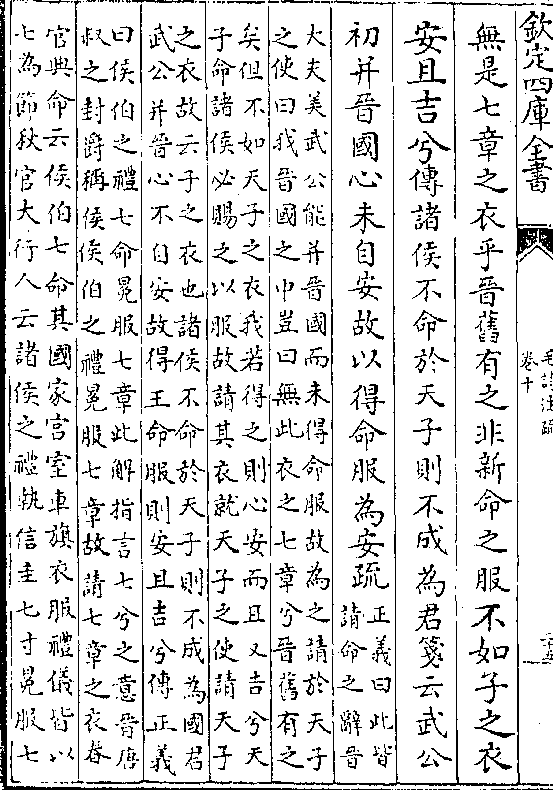 欽定四庫全書
毛詩注疏
卷十
無是七章之衣乎晉舊有之非新命之服不如子之衣
安且吉兮傳諸侯不命於天子則不成為君箋云武公
初并晉國心未自安故以得命服為安疏
正義曰此皆
請命之辭晉
大夫美武公能并晉國而未得命服故為之請於天子
之使曰我晉國之中豈曰無此衣之七章兮晉舊有之
矣但不如天子之衣我若得之則心安而且又吉兮天
子命諸侯必賜之以服故請其衣就天子之使請天子
之衣故云子之衣也諸侯不命於天子則不成為國君
武公并晉心不自安故得王命服則安且吉兮傳正義
曰侯伯之禮七命冕服七章此解指言七兮之意晉唐
叔之封爵稱侯侯伯之禮冕服七章故請七章之衣春
官典命云侯伯七命其國家宮室車旗衣服禮儀皆以
七為節秋官大行人云諸侯之禮執信圭七寸冕服七